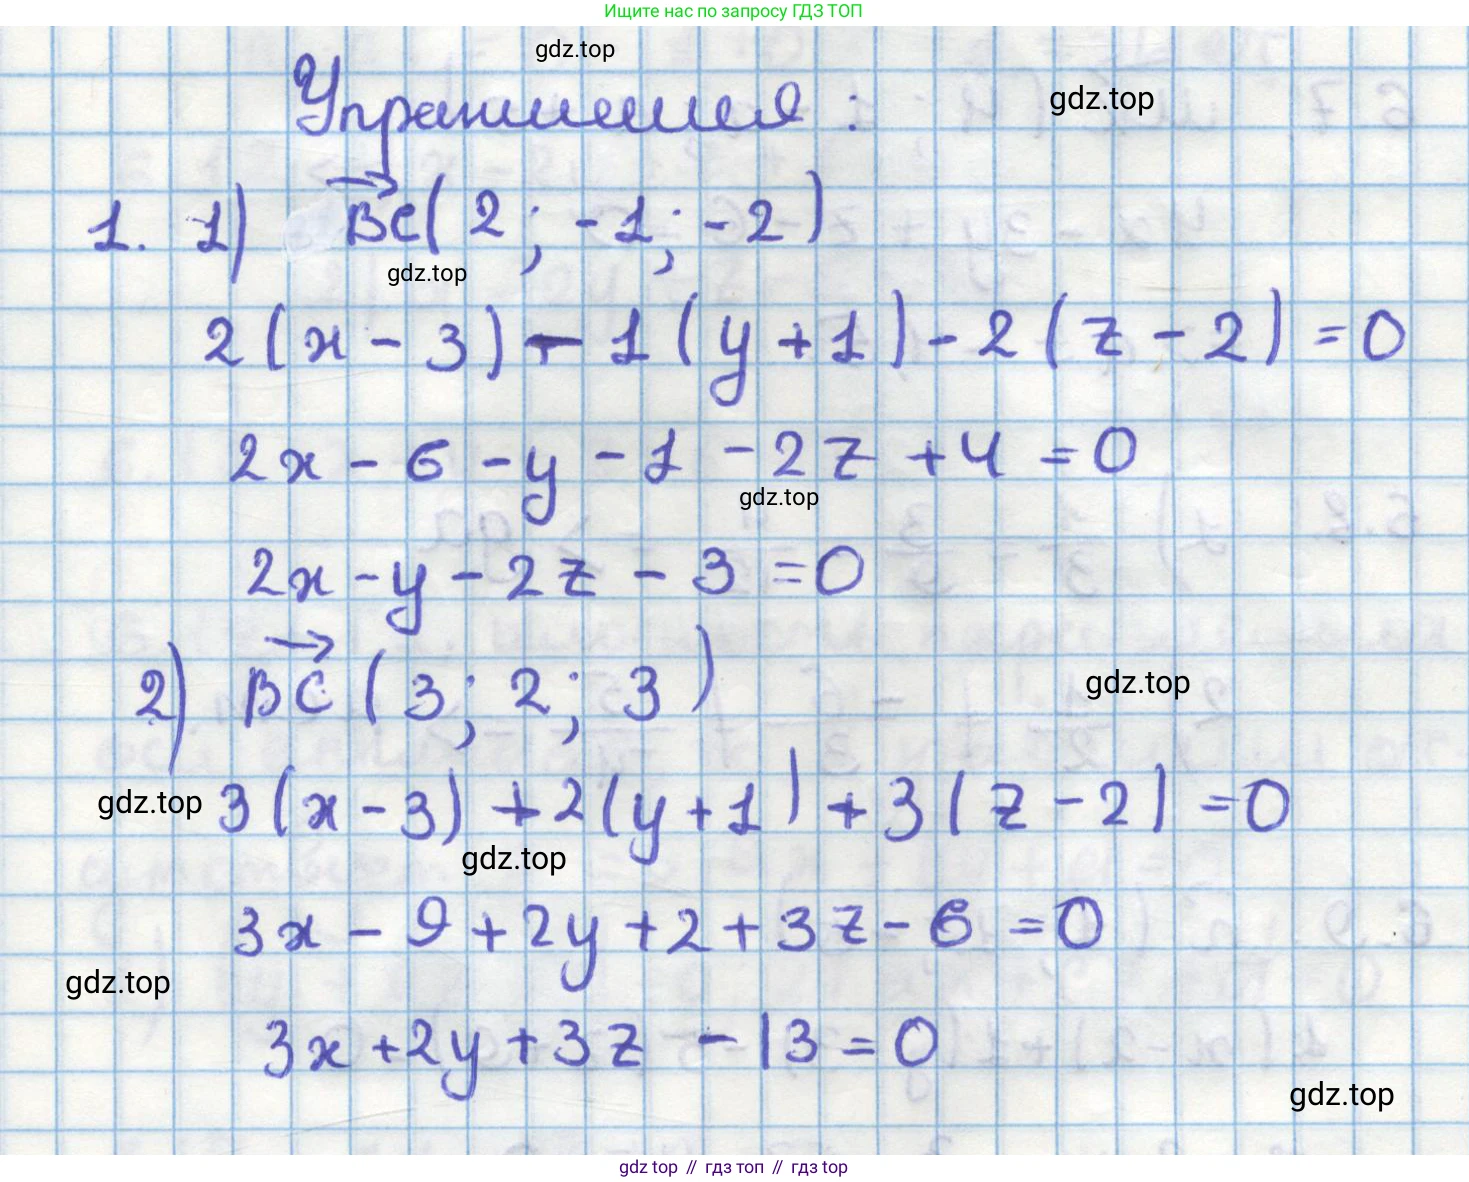 Ищите нас по запросу ГДЗ ТОП
gdz.top
Упражнения :
gdz.top
1. 1) BC( 2 ; -1 ; -2 )
gdz.top
2 ( x - 3 ) - 1 ( y + 1 ) - 2 ( z - 2 ) = 0
2x - 6 - y - 1 - 2z + 4 = 0
gdz.top
2x - y - 2z - 3 = 0
2) BC ( 3 ; 2 ; 3 )
gdz.top
3 ( x - 3 ) + 2 ( y + 1 ) + 3 ( z - 2 ) = 0
gdz.top
gdz.top
3x - 9 + 2y + 2 + 3z - 6 = 0
gdz.top
3x + 2y + 3z - 13 = 0
gdz.top
gdz top // гдз топ // гдз top